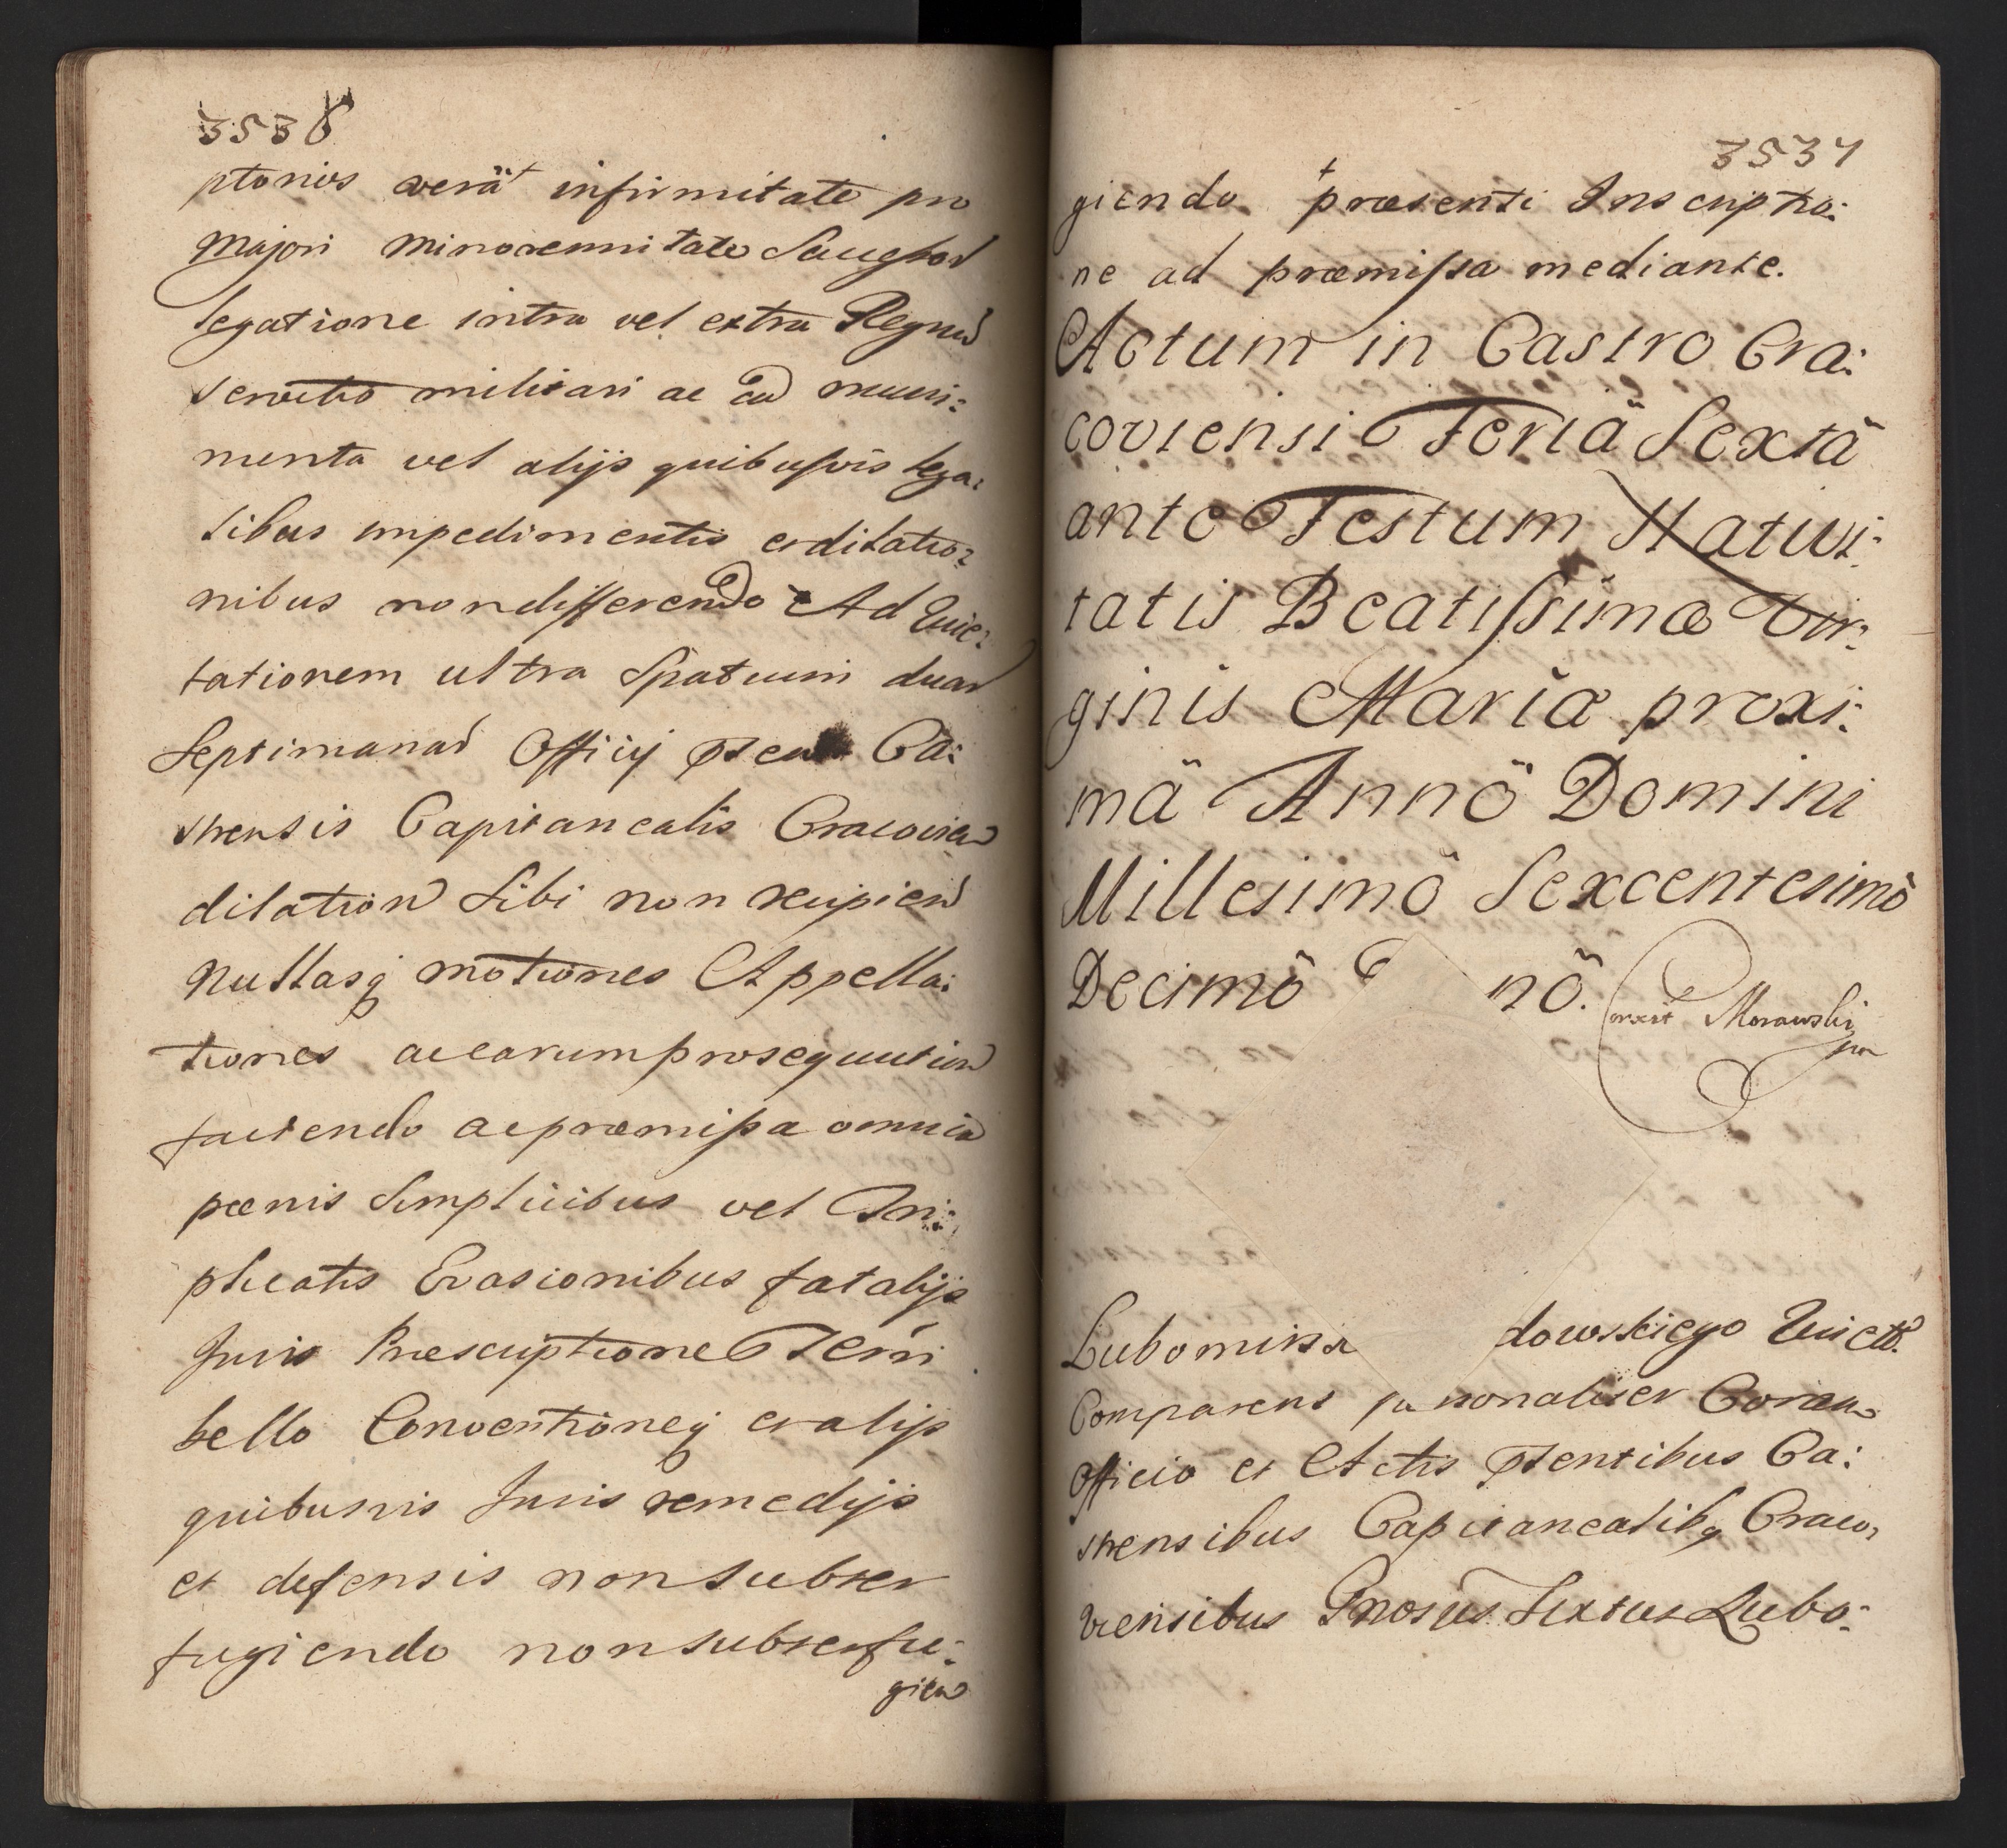 3538
ptorios verâ infirmitate pro
Majori minorennitate
legatione intra vel extra Regnu
servitio militari ac ad muni:
menta vel alijs quibusvis lega:
libus impedimentis et dilatio:
nibus non differendo Ad Evic:
tationem ultra Spatium duar
Septimanar Officij Cà:
strensis Capitanealis Cracovien
dilation Sibi non recipien
Nullasq motiones Appella:
tiones ac earum prosequution
faciendo ac præmissa omnia
pœnis Simplicibus vel Tri:
plicatis Evasionibus fatalijs
Juris Præscriptione Terri
bello Conventioneq et alijs
quibusvis Juris remedijs
et defensis non Subter
fugiendo non subterfu:
gien
3537
giendo præsenti Inscriptio:
ne ad præmissa mediante.
Actum in Castro Cra:
coviensi Feriâ Sextâ
ante Festum Nativi:
tatis Beatissimæ Vir:
ginis Mariæ proxi:
mâ Annô Domini
Millesimô Sexcentesimô
Decimô nô.
Morawski
Lubomirs dowskiego
Comparens personaliter Coram
Officio et Actis Ptentibus Ca:
strensibus Capitanealibq Craco,
viensibus Gnosus Sixtus Lubo: